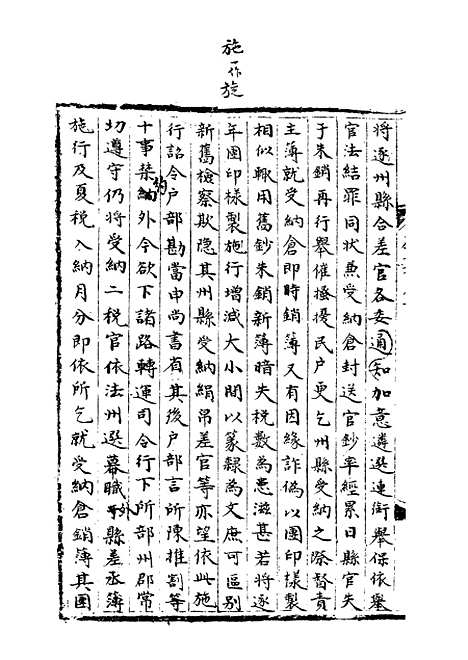 施一作旋
將逐州縣合差官各委通知加意遴選連銜舉保依舉
官法結罪同狀兼受納倉封送官鈔率經累日縣官失
于朱銷再行舉催擾擾民戶更乞州縣受納之祭督責
主簿就受納倉即時銷簿又有因緣詐偽以圓印樣製
相似輒用舊鈔朱銷新簿暗失税數為患滋甚若將逐
年圓印樣製施行增減大小間以篆隸為文庶可區別
新舊檢察欺隱其州縣受納絹帛差官等亦望依此施
行詔令户部勘當申尚書省其後户部言所陳推割等
十事禁約外令欲下諸路轉運司令行下所部州郡常
切遵守仍將受納二税官依法州選幕職外縣差丞簿
施行及夏税入納月分即依所乞就受納倉銷簿其圓